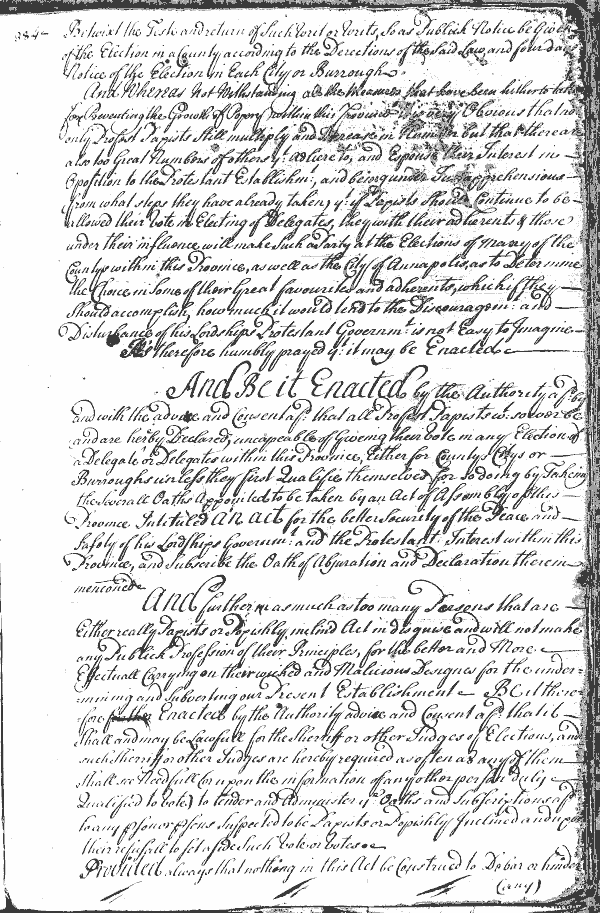 Betwixt the Teste and return of Such Writ or Writs, so as Publick Notice be Given
of the Election in a County according to the Directions of the said Law, and four days
Notice of the Election in Each City or Burrough.
And Whereas Not Withstanding all the Measures that have been hitherto taken
for Preventing the Growth of Popery within this Province it is very Obvious that not
only Profest Papists still multiply and Increase in Number but that there are
also too Great Numbers of others yt adhere to, and Espouse their Interest in
Oposition to the Protestant Establishmt, and being under Just apprehensions
from what steps they have already taken, yt if Papists Should Continue to be
allowed their Vote in Electing of Delegates, they with their adherents & those
under their influence, will make Such a Party at the Elections of many of the
Countys within this Province, as well as the City of Annapolis, as to Determine
the Choice in Some of their Great favourites and adherents, which if they
Should accomplish, how much it would tend to the Discouragemt and
Disturbance of his Lordships Protestant Governmt is not Easy to Imagine
It is therefore humbly prayed yt it may be Enacted
And Be it Enacted by the Authority afd by
and with the advice and Consent afd that all Profest Papists wtsoever be
and are hereby Declared, uncapeable of Giveing their Vote in any Election of
a Delegate or Delegates within this Province, Either for Countys Citys or
Burroughs unless they first Qualifie themselves for so doing by Takeing
the severall Oaths Appointed to be taken by an Act of Assembly of this
Province Intituled an act for the better Security of the Peace and
Safety of his Lordships Governmt and the Protestant Interest within this
Province, and Subscribe the Oath of Abjuration and Declaration therein
mencioned
And further in as much as too many Persons that are
Either really Papists or Popishly inclined Act in disguise and will not make
any Publick Profession of their Principles, for the better and More
Effectuall Carrying on their wicked and Malicious Designes for the under-
mining and Subverting our Present Establishment Be it there-
fore further Enacted by the Authority advice and Consent afd that it
Shall and may be Lawfull for the Sherriff or other Judges of Elections, and
such Sherriff or other Judges are hereby required as often as any of them
Shall see Needfull (or upon the information of any other person duly
Qualified to Vote) to tender and Administer ye Oaths and Subscriptions afd
to any pson or psons Suspected to be Papists or Popishly Inclined and upon
their refusall to set aside Such Vote or Votes
Provided always that nothing in this Act be Construed to Debar or hinder
(any)